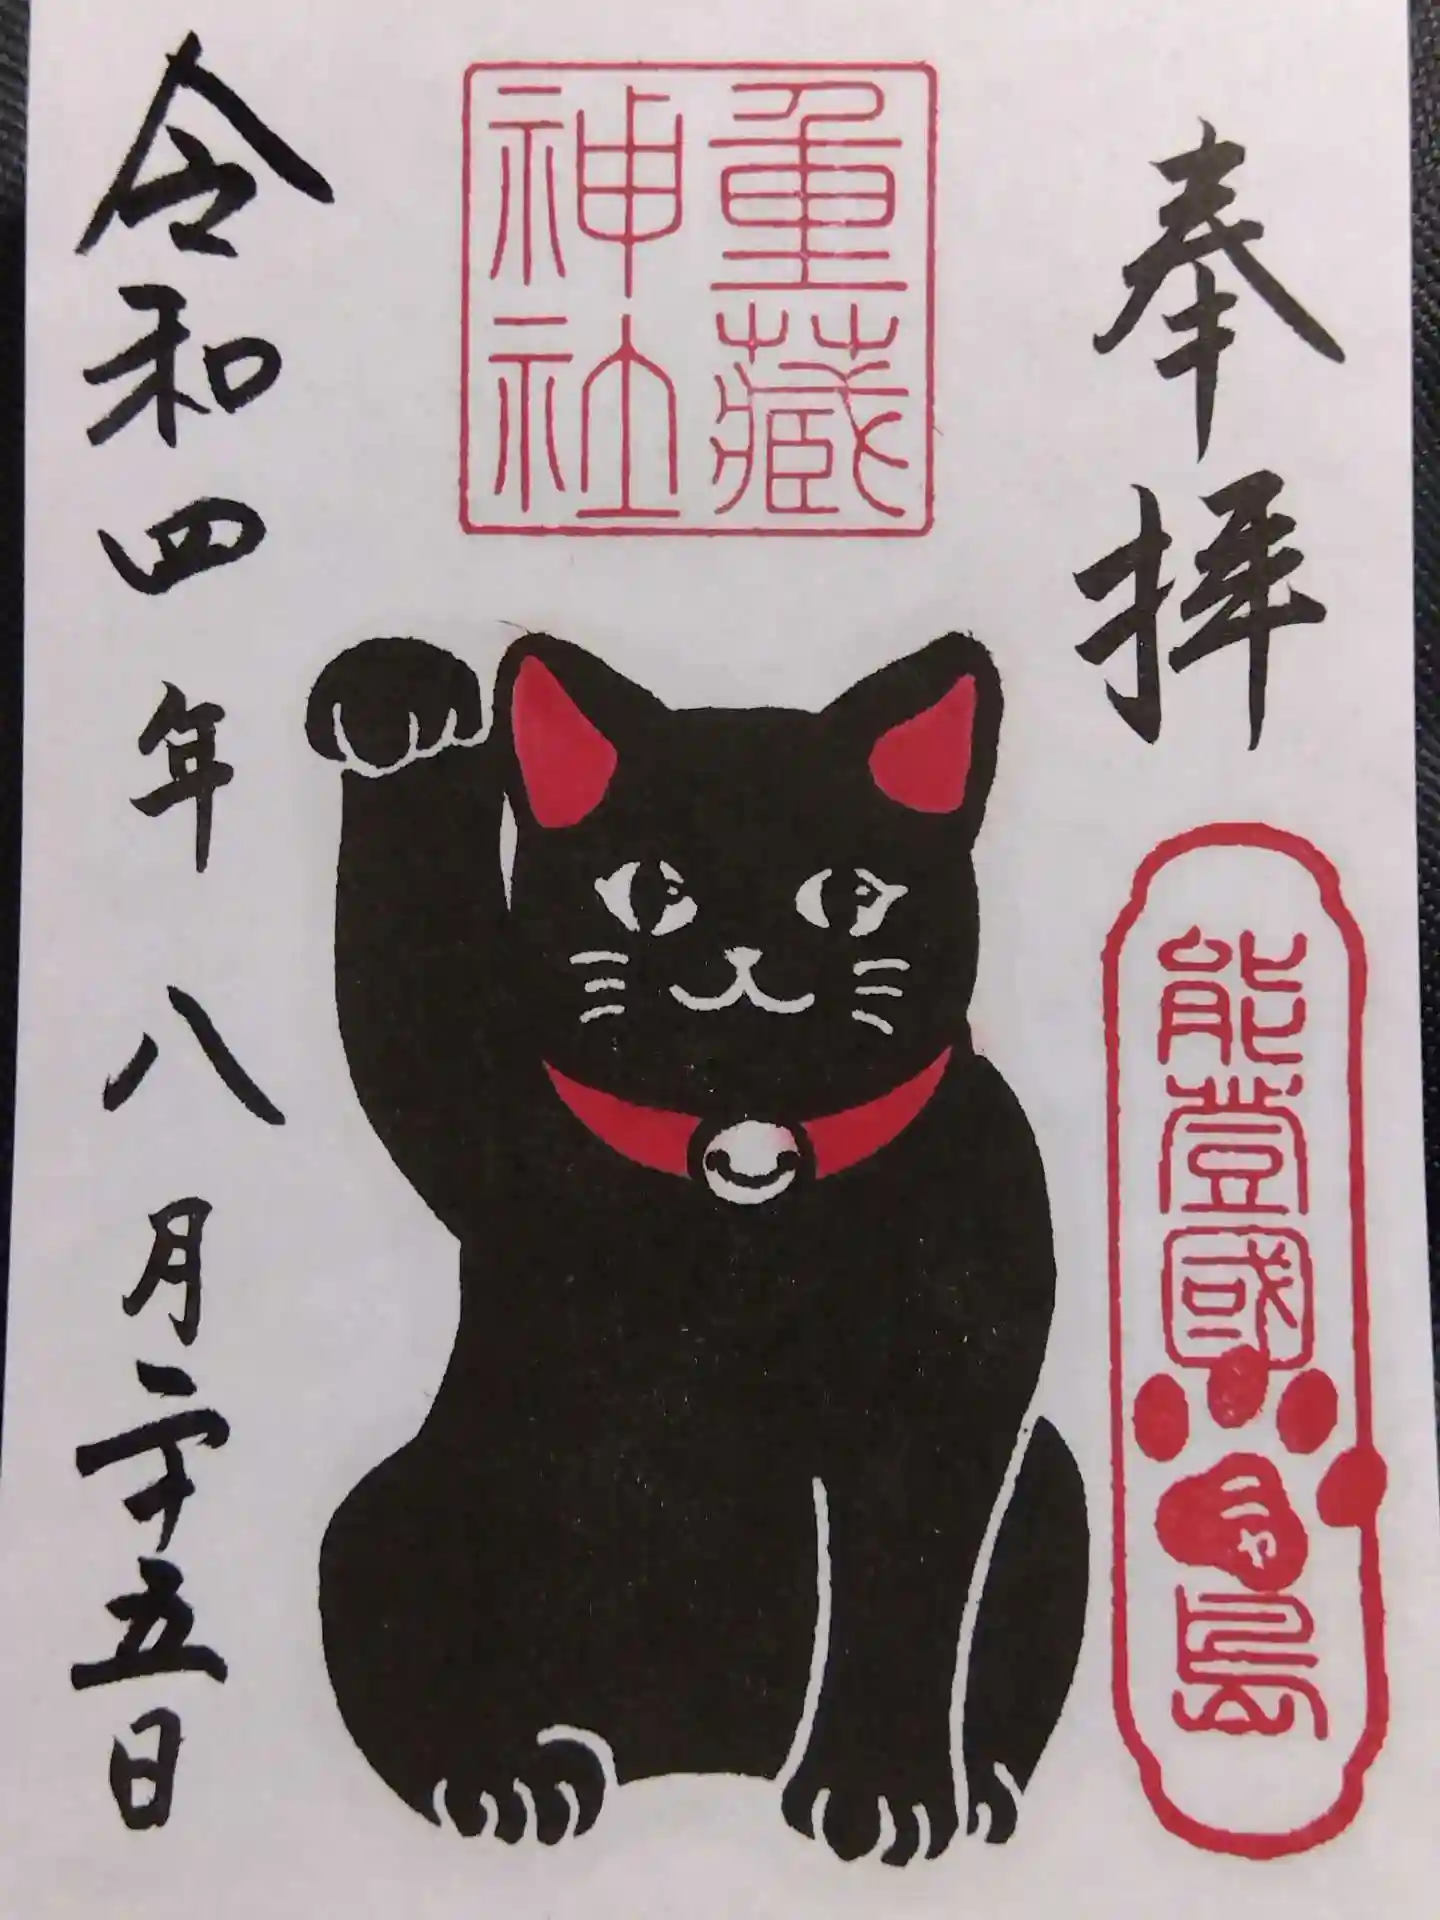 奉拝
能登國にゃ島
重藏
神社
令和四年八月二十五日